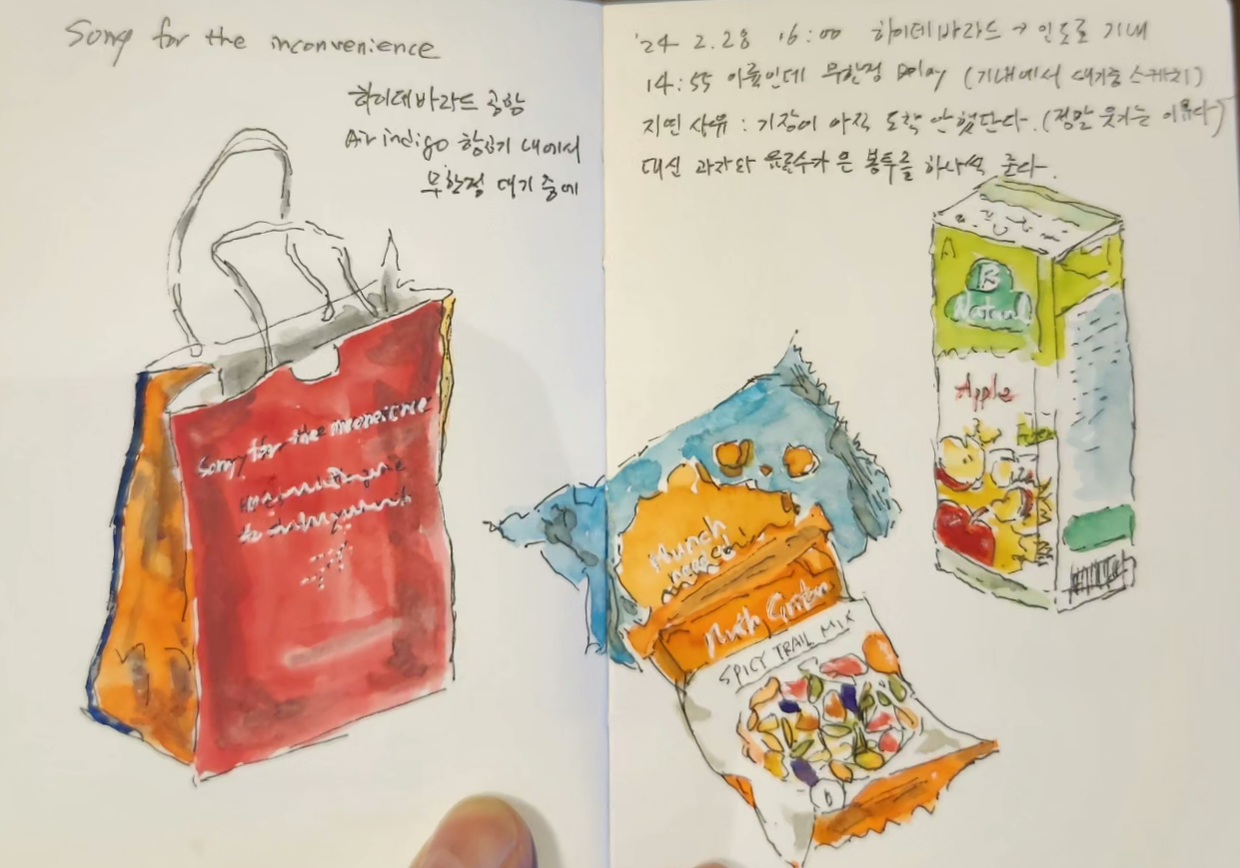 Sorry for the inconvenience
하이데바라드 공항
Air indigo 항공기 내에서
무한정 대기 중에
Sorry for the inconvenience
'24 2.28 16:00 하이데바라드 → 인도르 기내
14:55 이륙인데 무한정 Delay (기내에서 대기중 스케치)
지연 사유 : 기장이 아직 도착 안 했단다. (정말 웃기는 이유다)
대신 과자와 음료수가 든 봉투를 하나씩 준다.
B
Natural
Apple
Munch
SPICY TRAIL MIX